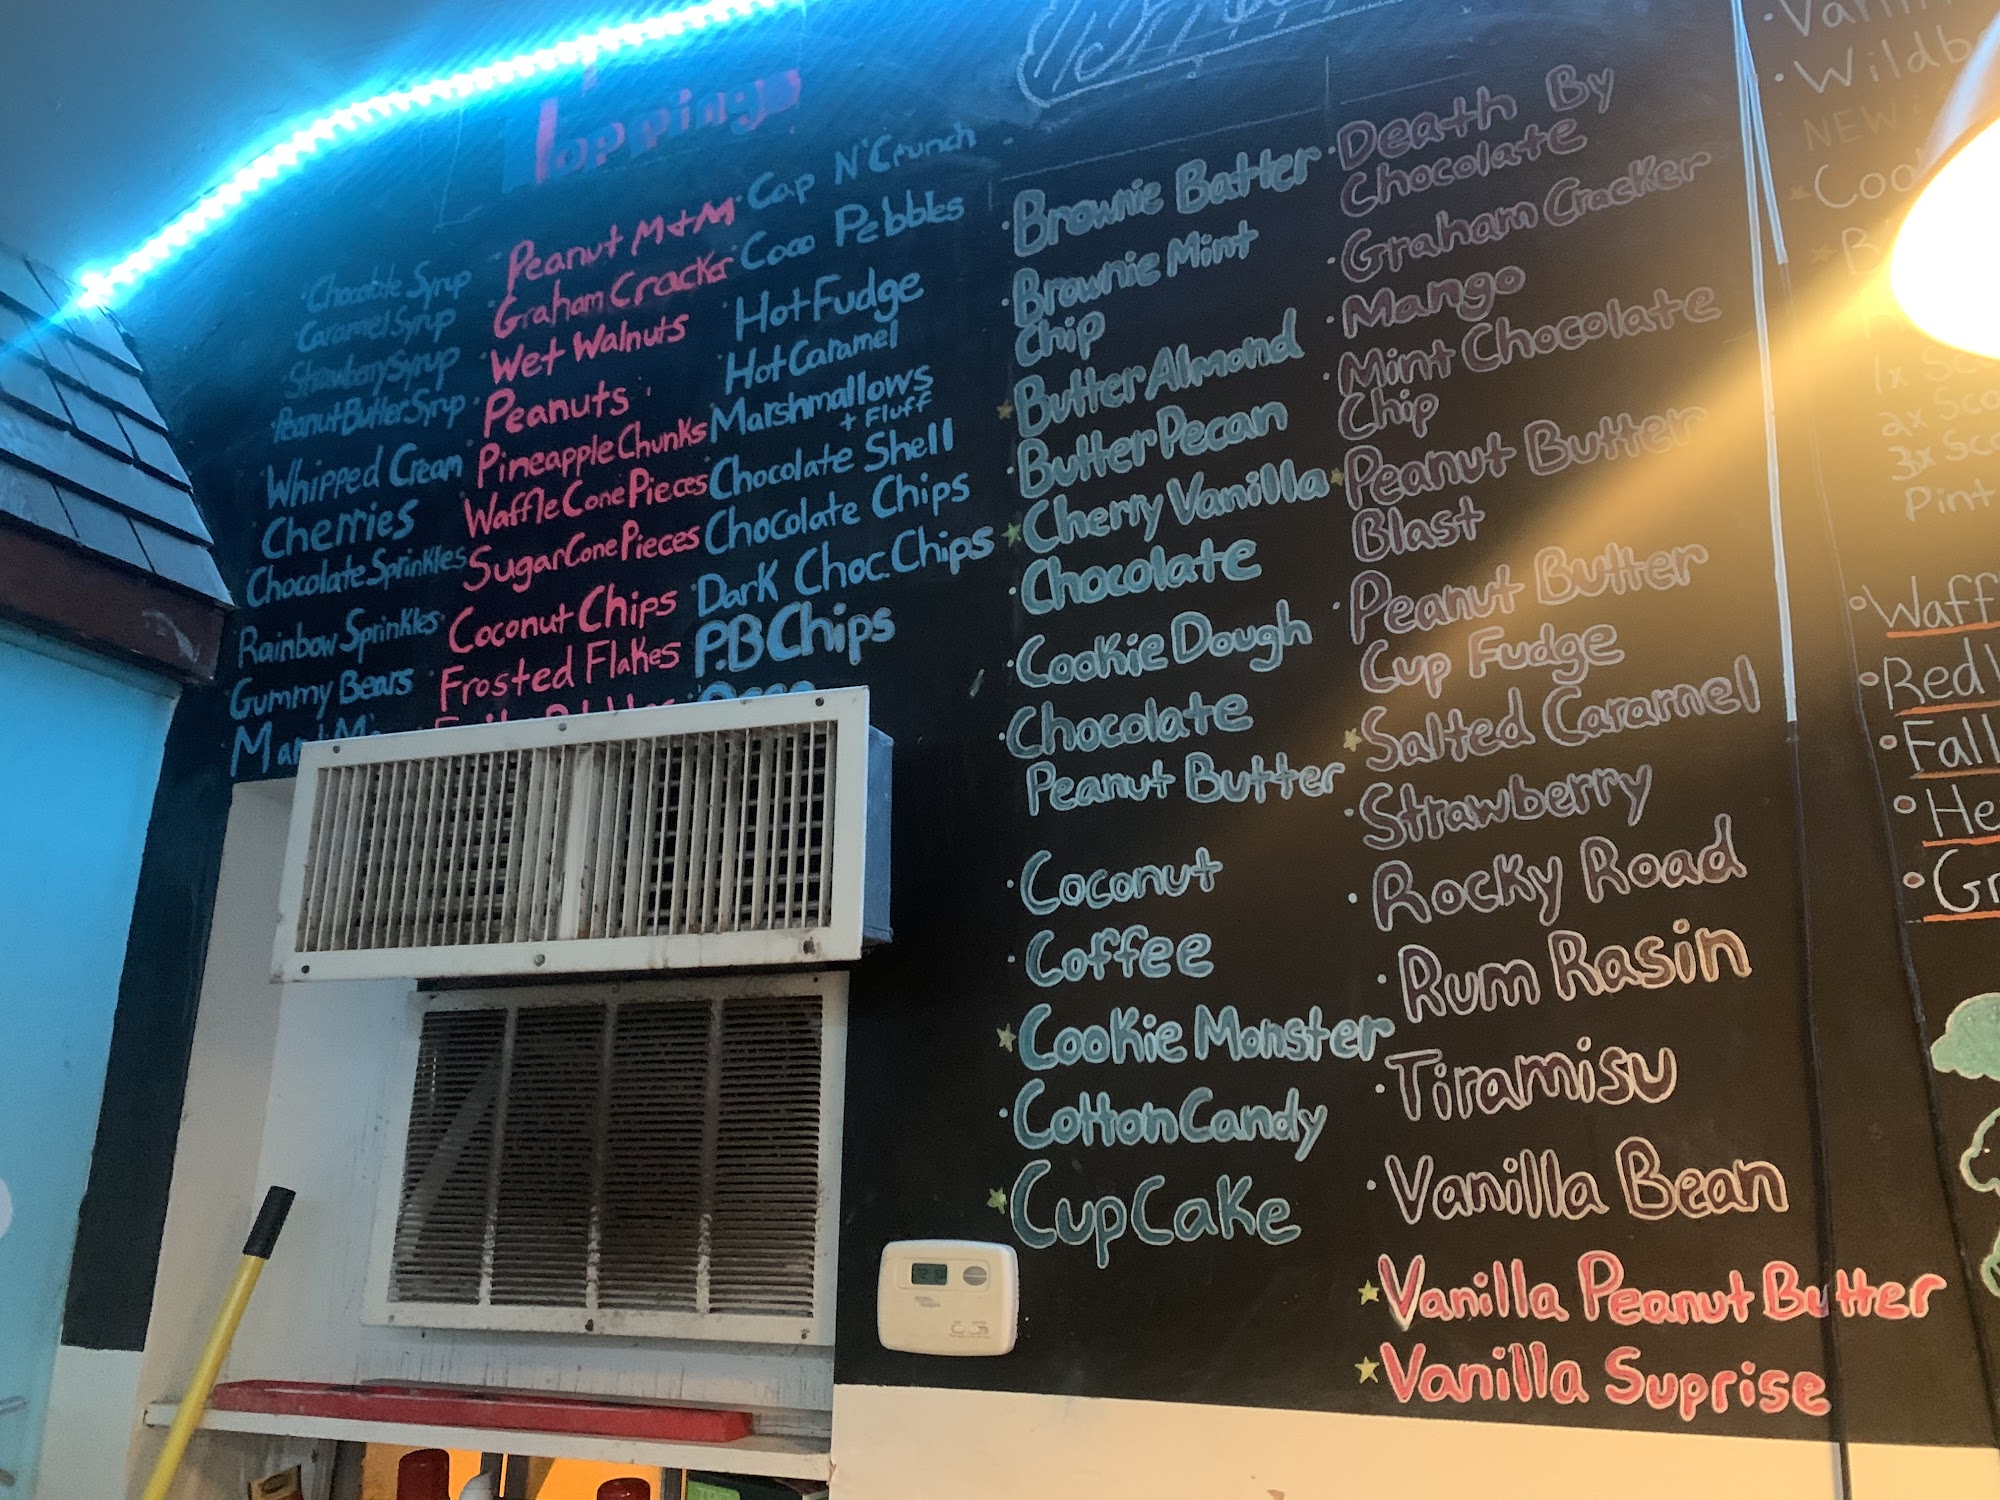 Toppings
Chocolate Syrup
Caramel Syrup
Strawberry Syrup
Peanut Butter Syrup
Whipped Cream
Cherries
Chocolate Sprinkles
Rainbow Sprinkles
Gummy Bears
Peanut M+M
Graham Cracker
Wet Walnuts
Peanuts
Pineapple Chunks
Waffle Cone Pieces
Sugar Cone Pieces
Coconut Chips
Frosted Flakes
Cap N'Crunch
Coco Pebbles
Hot Fudge
Hot Caramel
Marshmallows
+ Fluff
Chocolate Shell
Chocolate Chips
Dark Choc. Chips
P.B Chips
Brownie Batter
Brownie Mint
Chip
Butter Almond
Butter Pecan
Cherry Vanilla
Chocolate
Cookie Dough
Chocolate
Peanut Butter
Coconut
Coffee
Cookie Monster
Cotton Candy
CupCake
Death By
Chocolate
Graham Cracker
Mango
Mint Chocolate
Chip
Peanut Butter
Blast
Peanut Butter
Cup Fudge
Salted Caramel
Strawberry
Rocky Road
Rum Rasin
Tiramisu
Vanilla Bean
Vanilla Peanut Butter
Vanilla Suprise
NEW
1x
2x
3x
Pint
Red
Fall